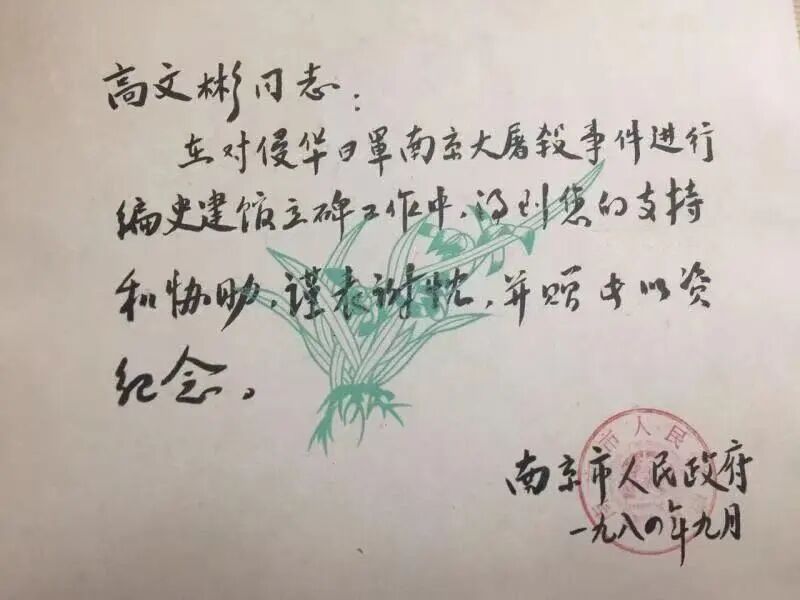 高文彬同志：
在对侵华日军南京大屠殺事件进行
编史建馆立碑工作中，得到您的支持
和协助，谨表谢忱，并赠书以资
纪念。
南京市人民政府
一九八四年九月
市人民